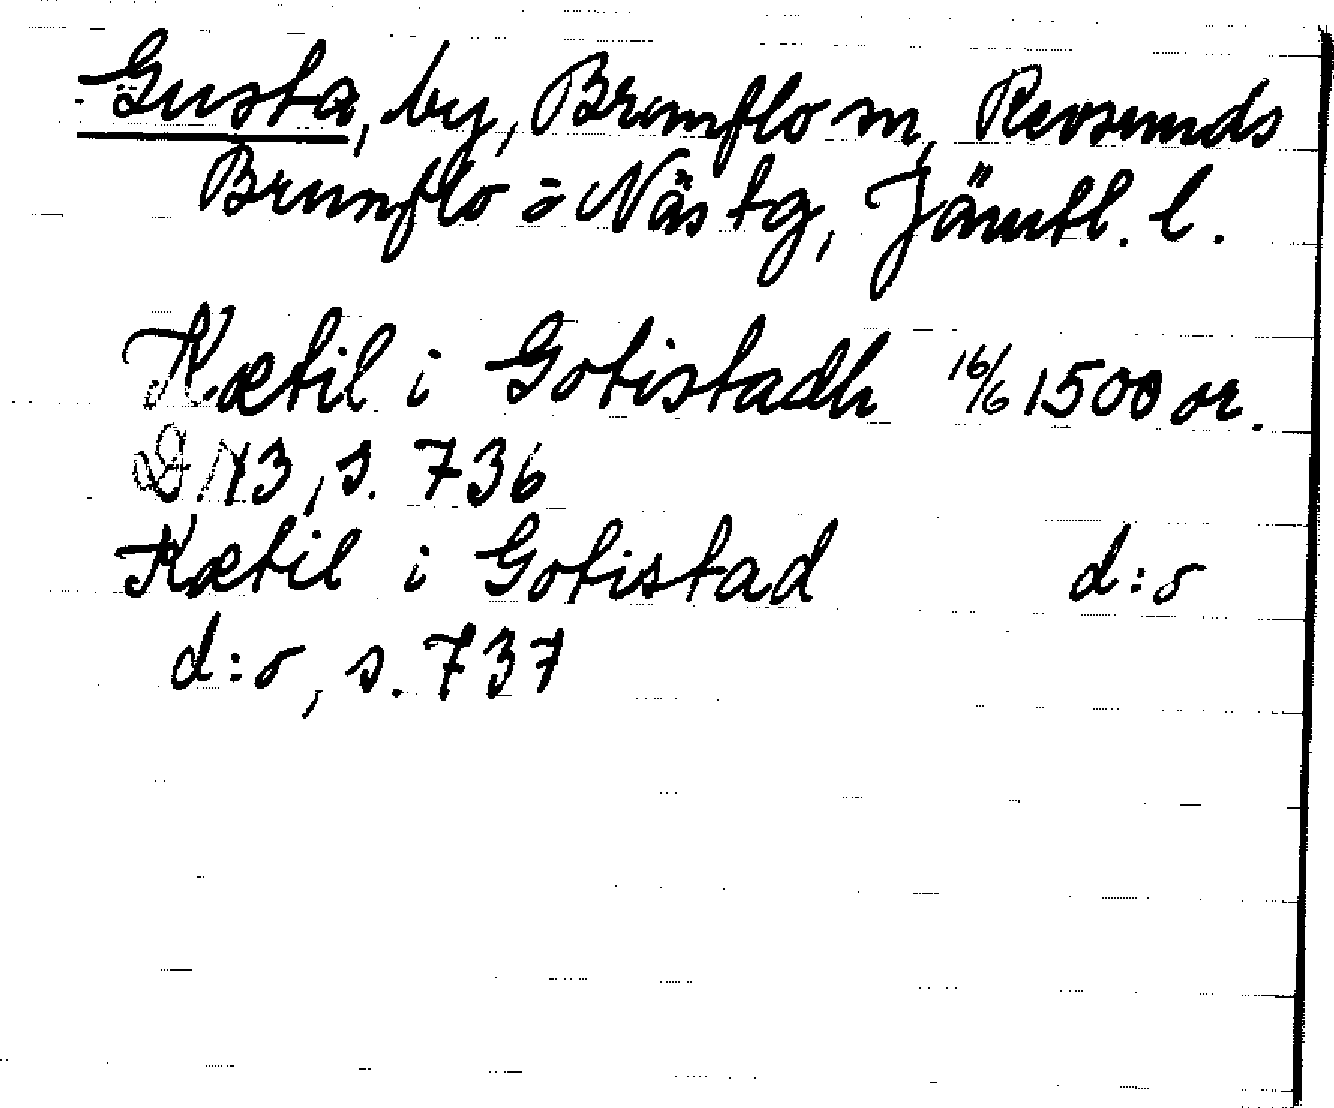 Gusta, by, Brunflo sn, Revsunds
Brunflo o Näs tg, Jämtl. l.
Kætil i Gotistadh 16/6 1500 or.
D N 3, s. 736
Kætil i Gotistad d:o
d:o, s. 737